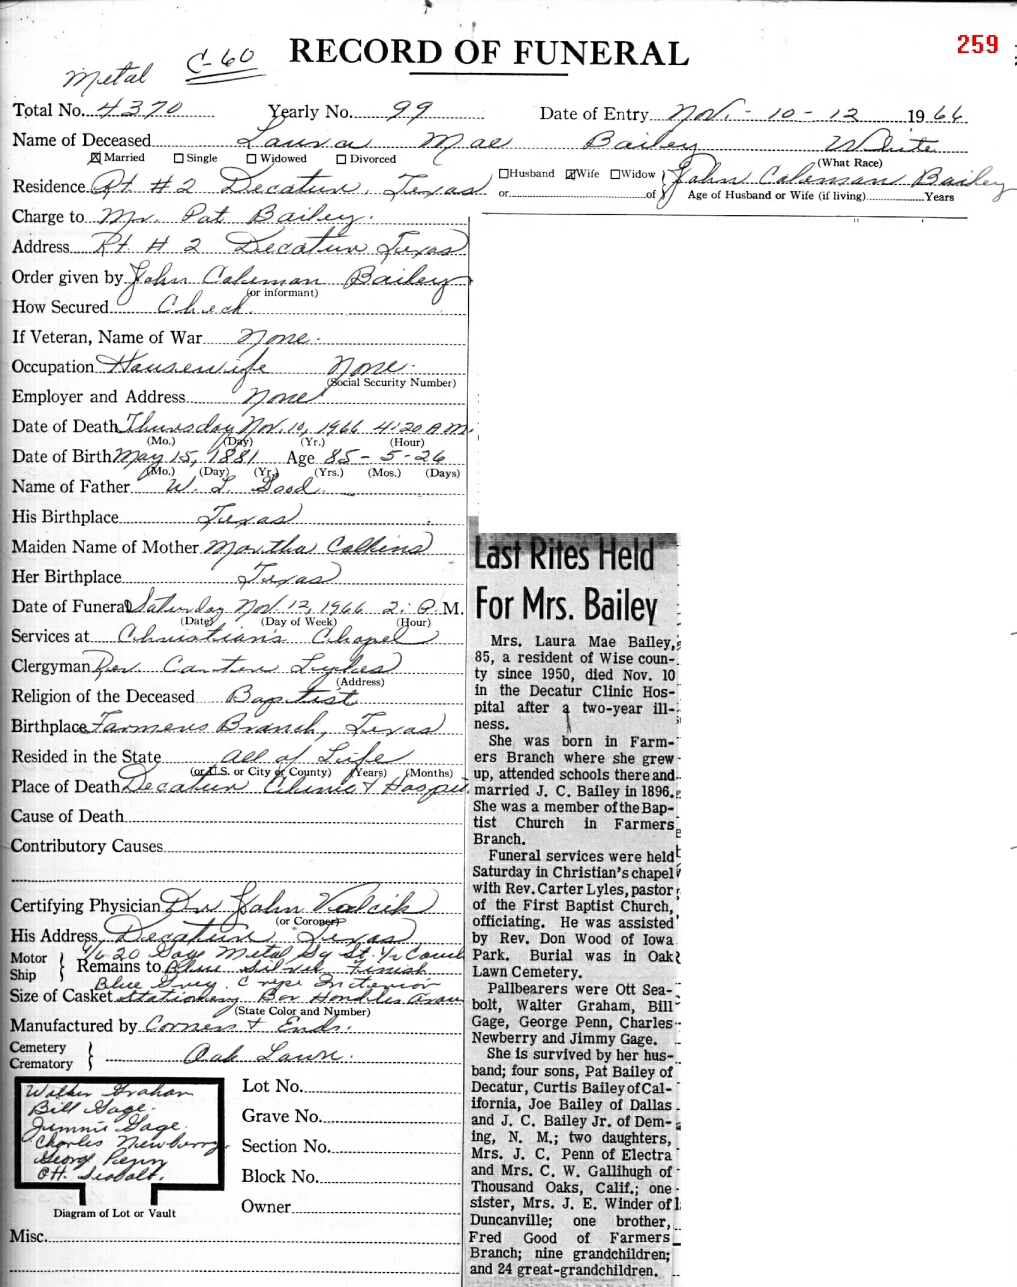 259
RECORD OF FUNERAL
Metal C-60
Total No. 4370 Yearly No. 99 Date of Entry Nov. - 10 - 12 1966
Name of Deceased Laura Mae Bailey White
☒ Married ☐ Single ☐ Widowed ☐ Divorced (What Race)
Residence Rt #2 Decatur, Texas ☐ Husband ☒ Wife ☐ Widow of John Coleman Bailey
or Age of Husband or Wife (if living) Years
Charge to Mr. Pat Bailey.
Address Rt # 2 Decatur Texas
Order given by John Coleman Bailey
(or informant)
How Secured Check
If Veteran, Name of War None.
Occupation Housewife None.
(Social Security Number)
Employer and Address None
Date of Death Thursday Nov. 10, 1966 4:20 A.M.
(Mo.) (Day) (Yr.) (Hour)
Date of Birth May 15, 1881 Age 85 - 5 - 26
(Mo.) (Day) (Yr.) (Yrs.) (Mos.) (Days)
Name of Father W. L. Good
His Birthplace Texas
Maiden Name of Mother Martha Collins
Her Birthplace Texas
Date of Funeral Saturday Nov. 12, 1966 2: P.M.
(Date) (Day of Week) (Hour)
Services at Christian's Chapel
Clergyman Rev. Carter Lykes
(Address)
Religion of the Deceased Baptist
Birthplace Farmers Branch, Texas
Resided in the State All of Life
(or U.S. or City or County) (Years) (Months)
Place of Death Decatur Clinic & Hospit
Cause of Death
Contributory Causes
Certifying Physician Dr John
(or Coroner)
His Address Decatur Texas
Motor
Ship
Remains to
6/6 20 Gage Metal Sq St.
Blue Silver Finish
Blue Grey Crepe Interior
Size of Casket Stationery Bar Handles
(State Color and Number)
Manufactured by Corners & Ends.
Cemetery
Crematory
Oak Lawn.
Walter Graham
Bill Gage.
Jimmie Gage.
Charles Newberry
George Penn
Ott. Seabolt.
Diagram of Lot or Vault
Lot No.
Grave No.
Section No.
Block No.
Owner
Misc.
Last Rites Held
For Mrs. Bailey
Mrs. Laura Mae Bailey,
85, a resident of Wise coun-
ty since 1950, died Nov. 10
in the Decatur Clinic Hos-
pital after a two-year ill-
ness.
She was born in Farm-
ers Branch where she grew
up, attended schools there and
married J. C. Bailey in 1896.
She was a member of the Bap-
tist Church in Farmers
Branch.
Funeral services were held
Saturday in Christian's chapel
with Rev. Carter Lyles, pastor
of the First Baptist Church,
officiating. He was assisted
by Rev. Don Wood of Iowa
Park. Burial was in Oak
Lawn Cemetery.
Pallbearers were Ott Sea-
bolt, Walter Graham, Bill
Gage, George Penn, Charles
Newberry and Jimmy Gage.
She is survived by her hus-
band; four sons, Pat Bailey of
Decatur, Curtis Bailey of Cal-
ifornia, Joe Bailey of Dallas
and J. C. Bailey Jr. of Dem-
ing, N. M.; two daughters,
Mrs. J. C. Penn of Electra
and Mrs. C. W. Gallihugh of
Thousand Oaks, Calif.; one
sister, Mrs. J. E. Winder of
Duncanville; one brother,
Fred Good of Farmers
Branch; nine grandchildren;
and 24 great-grandchildren.